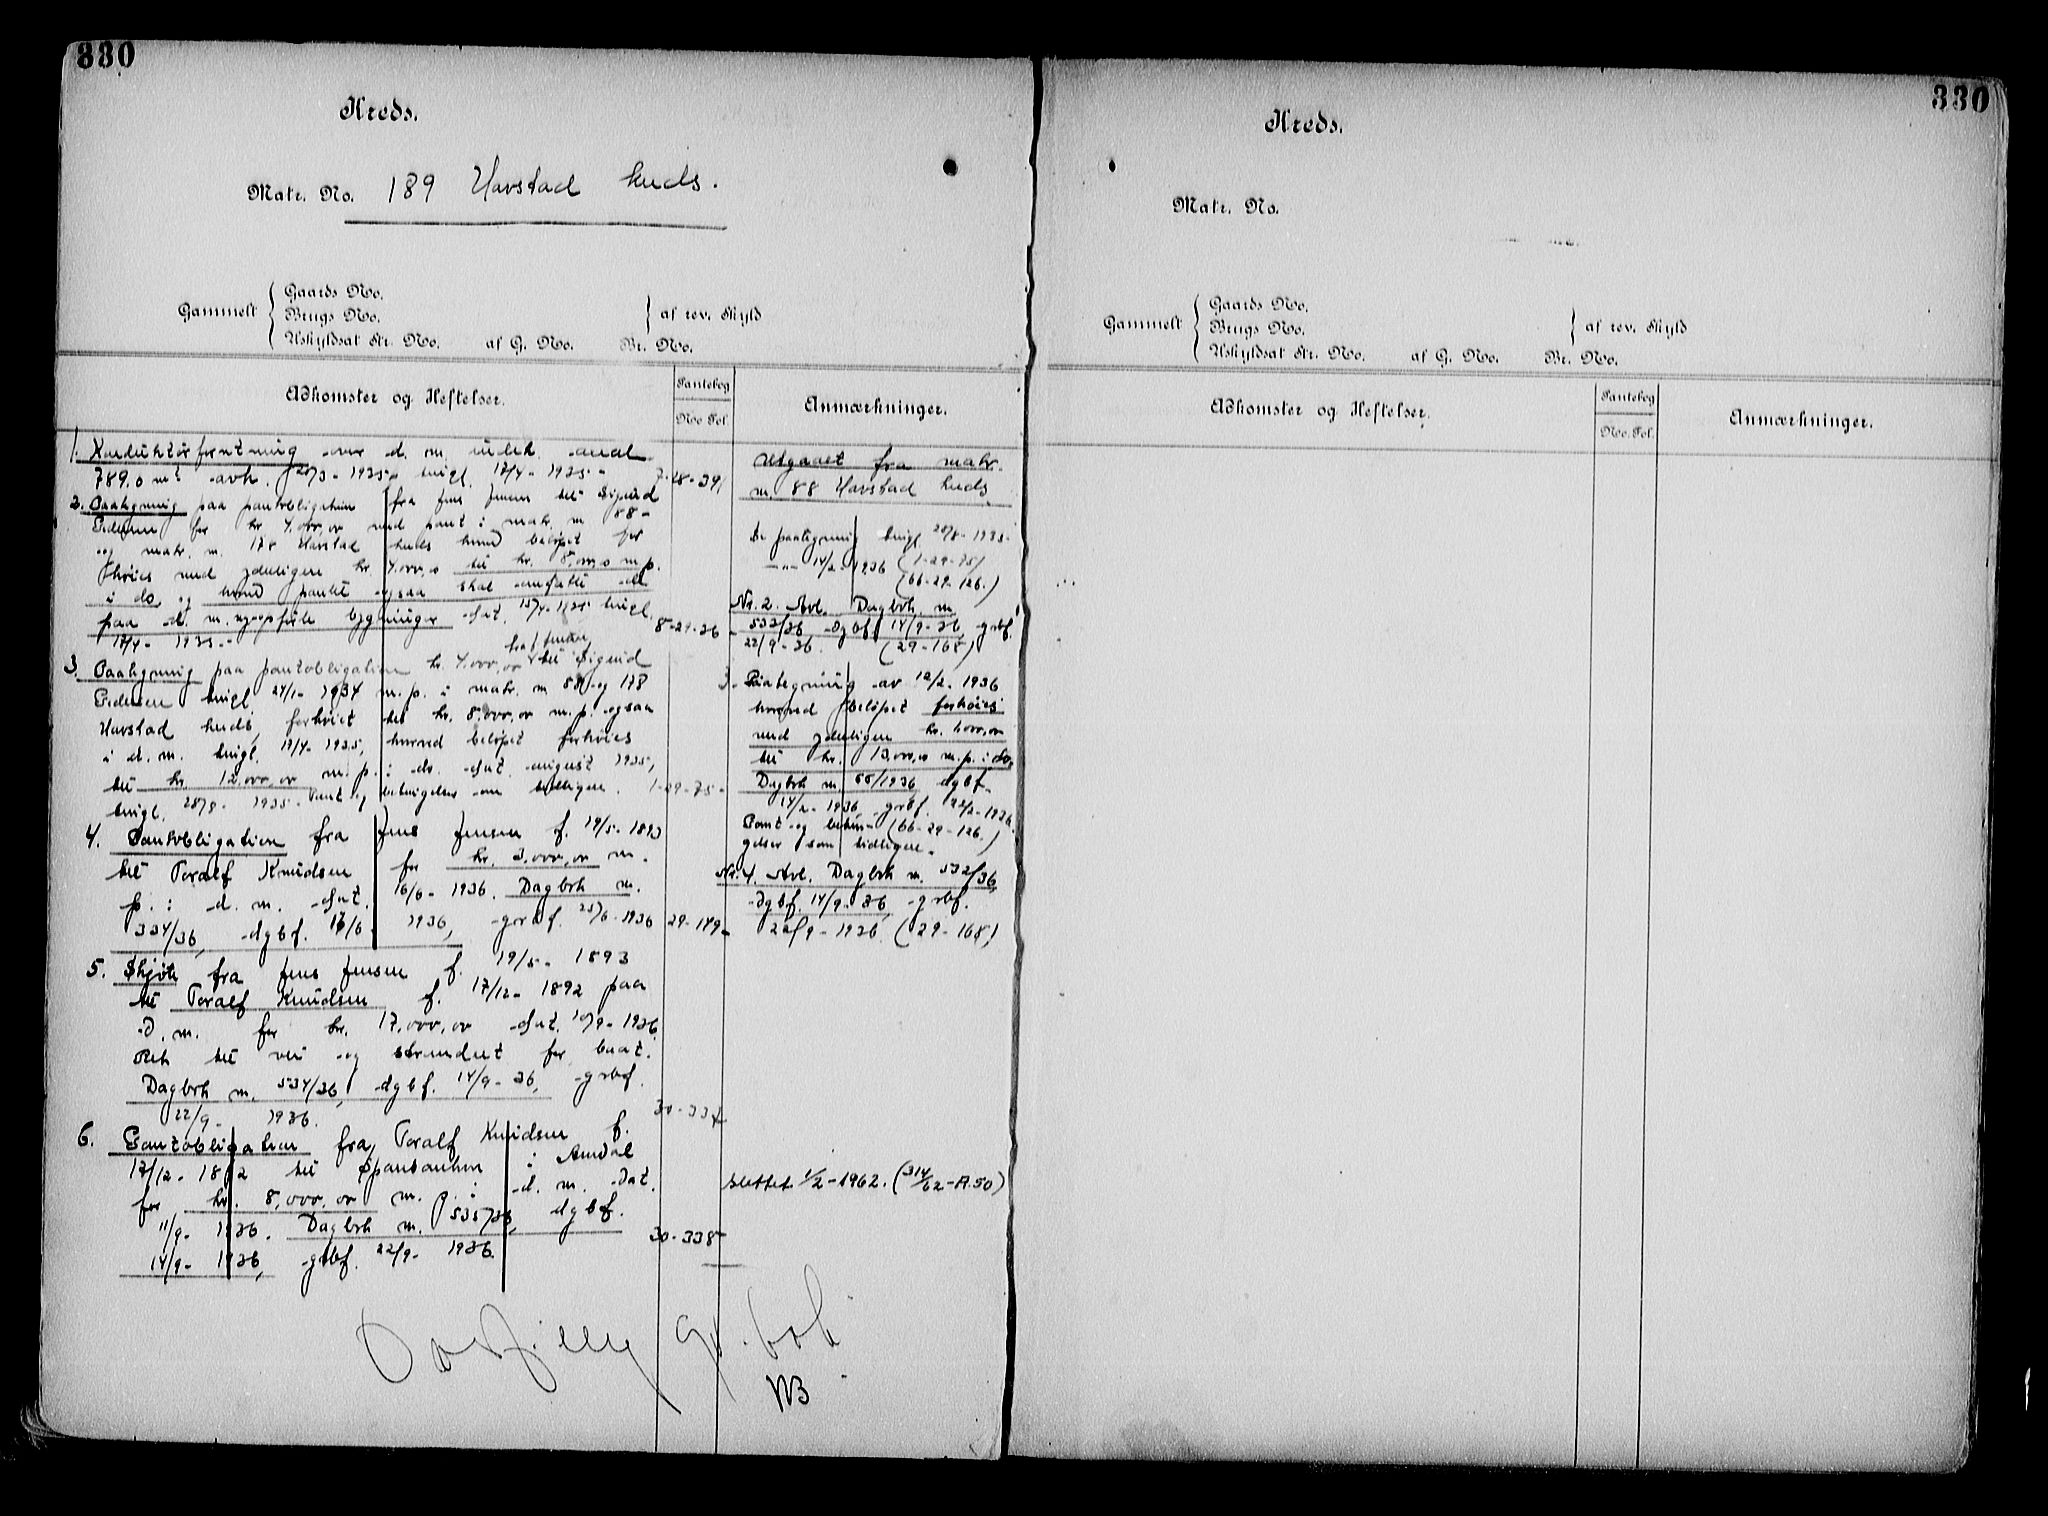 330
Kreds.
Matr. No. 189 Havstad kreds.
Gammelt
Gaards No.
Brugs No.
Uskyldsat Str. No. af G. No. Br. No.
af rev. Skyld
Adkomster og Heftelser.
Pantebog
No. Fol.
Anmærkninger.
1. Konduktørforretning over d. m. areal
789.0 m² avh. 20/3- 1935 tingl. 17/4- 1935- 7-28-39
2. Paategning paa pantobligation fra Jens Jensen til Sigurd
Pedersen for kr. 4.000,00 med pant i matr. nr 88-
og matr. nr. 178 Havstad kreds hvorved beløpet for
høies med yderligere kr. 4.000,00 til kr. 8.000,00 m.p.
i do. og hvorved pantet ogsaa skal omfatte de
paa d. m. nyopførte bygninger dat. 15/4- 1935 tingl.
17/4- 1935- 8-29-36-
3. Paategning paa pantobligation kr. 4.000,00 fra J. Jensen til Sigurd
Pedersen tingl 24/1- 1934 m.p. i matr. nr 88 og 178
Havstad kreds, forhøiet til kr. 8.000,00 m.p. ogsaa
i d. m. tingl. 17/4- 1935, hvorved beløpet forhøies
til kr. 12.000,00 m.p. i do. dat. august 1935,
tingl. 28/8- 1935- Pant og betingelser som tidligere. 1-29-75-
4. Pantobligation fra Jens Jensen f. 19/5- 1893
til Toralf Knudsen for kr. 3.000,00 m.
p. i d. m. dat. 16/6- 1936. Dagbok nr.
334/36, dgbf. 17/6- 1936, grbf. 25/6- 1936 29-149-
5. Skjøte fra Jens Jensen f. 19/5- 1893
til Toralf Knudsen f. 17/12- 1892 paa
d. m. for kr. 17.000,00 dat. 10/9- 1936
Ret til vei og strandret for baat.
Dagbok nr. 534/36, dgbf. 14/9- 36, grbf.
22/9- 1936. 30-337
6. Pantobligation fra Toralf Knudsen f.
17/12- 1892 til Sparebanken i Arendal
for kr. 8.000,00 m. p. i d. m. dat.
11/9- 1936. Dagbok nr. 535/36, dgbf.
14/9- 1936, grbf. 22/9- 1936. 30-338
Utgaaet fra matr.
nr. 88 Havstad kreds
Se paategning tingl. 28/8- 1935-
-"- 14/2- 1936 (1-29-75)
(66-29-126.)
Nr. 2. Avl. Dagbok nr
533/36 dgbf. 14/9- 36, grbf.
22/9- 36. (29-168)
3- Paategning av 12/2- 1936
hvorved beløpet forhøies
med yderligere kr. 1000,00
til kr. 13.000,00 m.p. i do,
Dagbok nr. 55/1936 dgbf.
14/2- 1936 grbf. 22/2- 1936.
Pant og betin- (66-29-126.)
gelser som tidligere.
Nr. 4. Avl. Dagbok nr. 532/36,
dgbf. 14/9- 36, grbf.
22/9- 1936. (29-168)
slettet 1/2-1962. (314/62-A.50)
NB
330
Kreds.
Matr. No.
Gammelt
Gaards No.
Brugs No.
Uskyldsat Str. No. af G. No. Br. No.
af rev. Skyld
Adkomster og Heftelser.
Pantebog
No. Fol.
Anmærkninger.